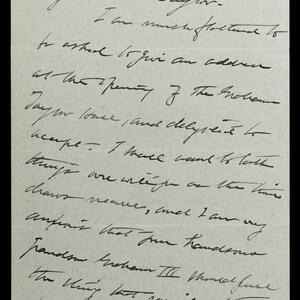 I am much flattered to
be asked to give an address
at the opening of the Graham
Taylor House, and delighted to
accept - I shall want to talk
things over with you as the time
draws nearer, and I am very
anxious that your handsome
grandson Graham III should pull
the thing that